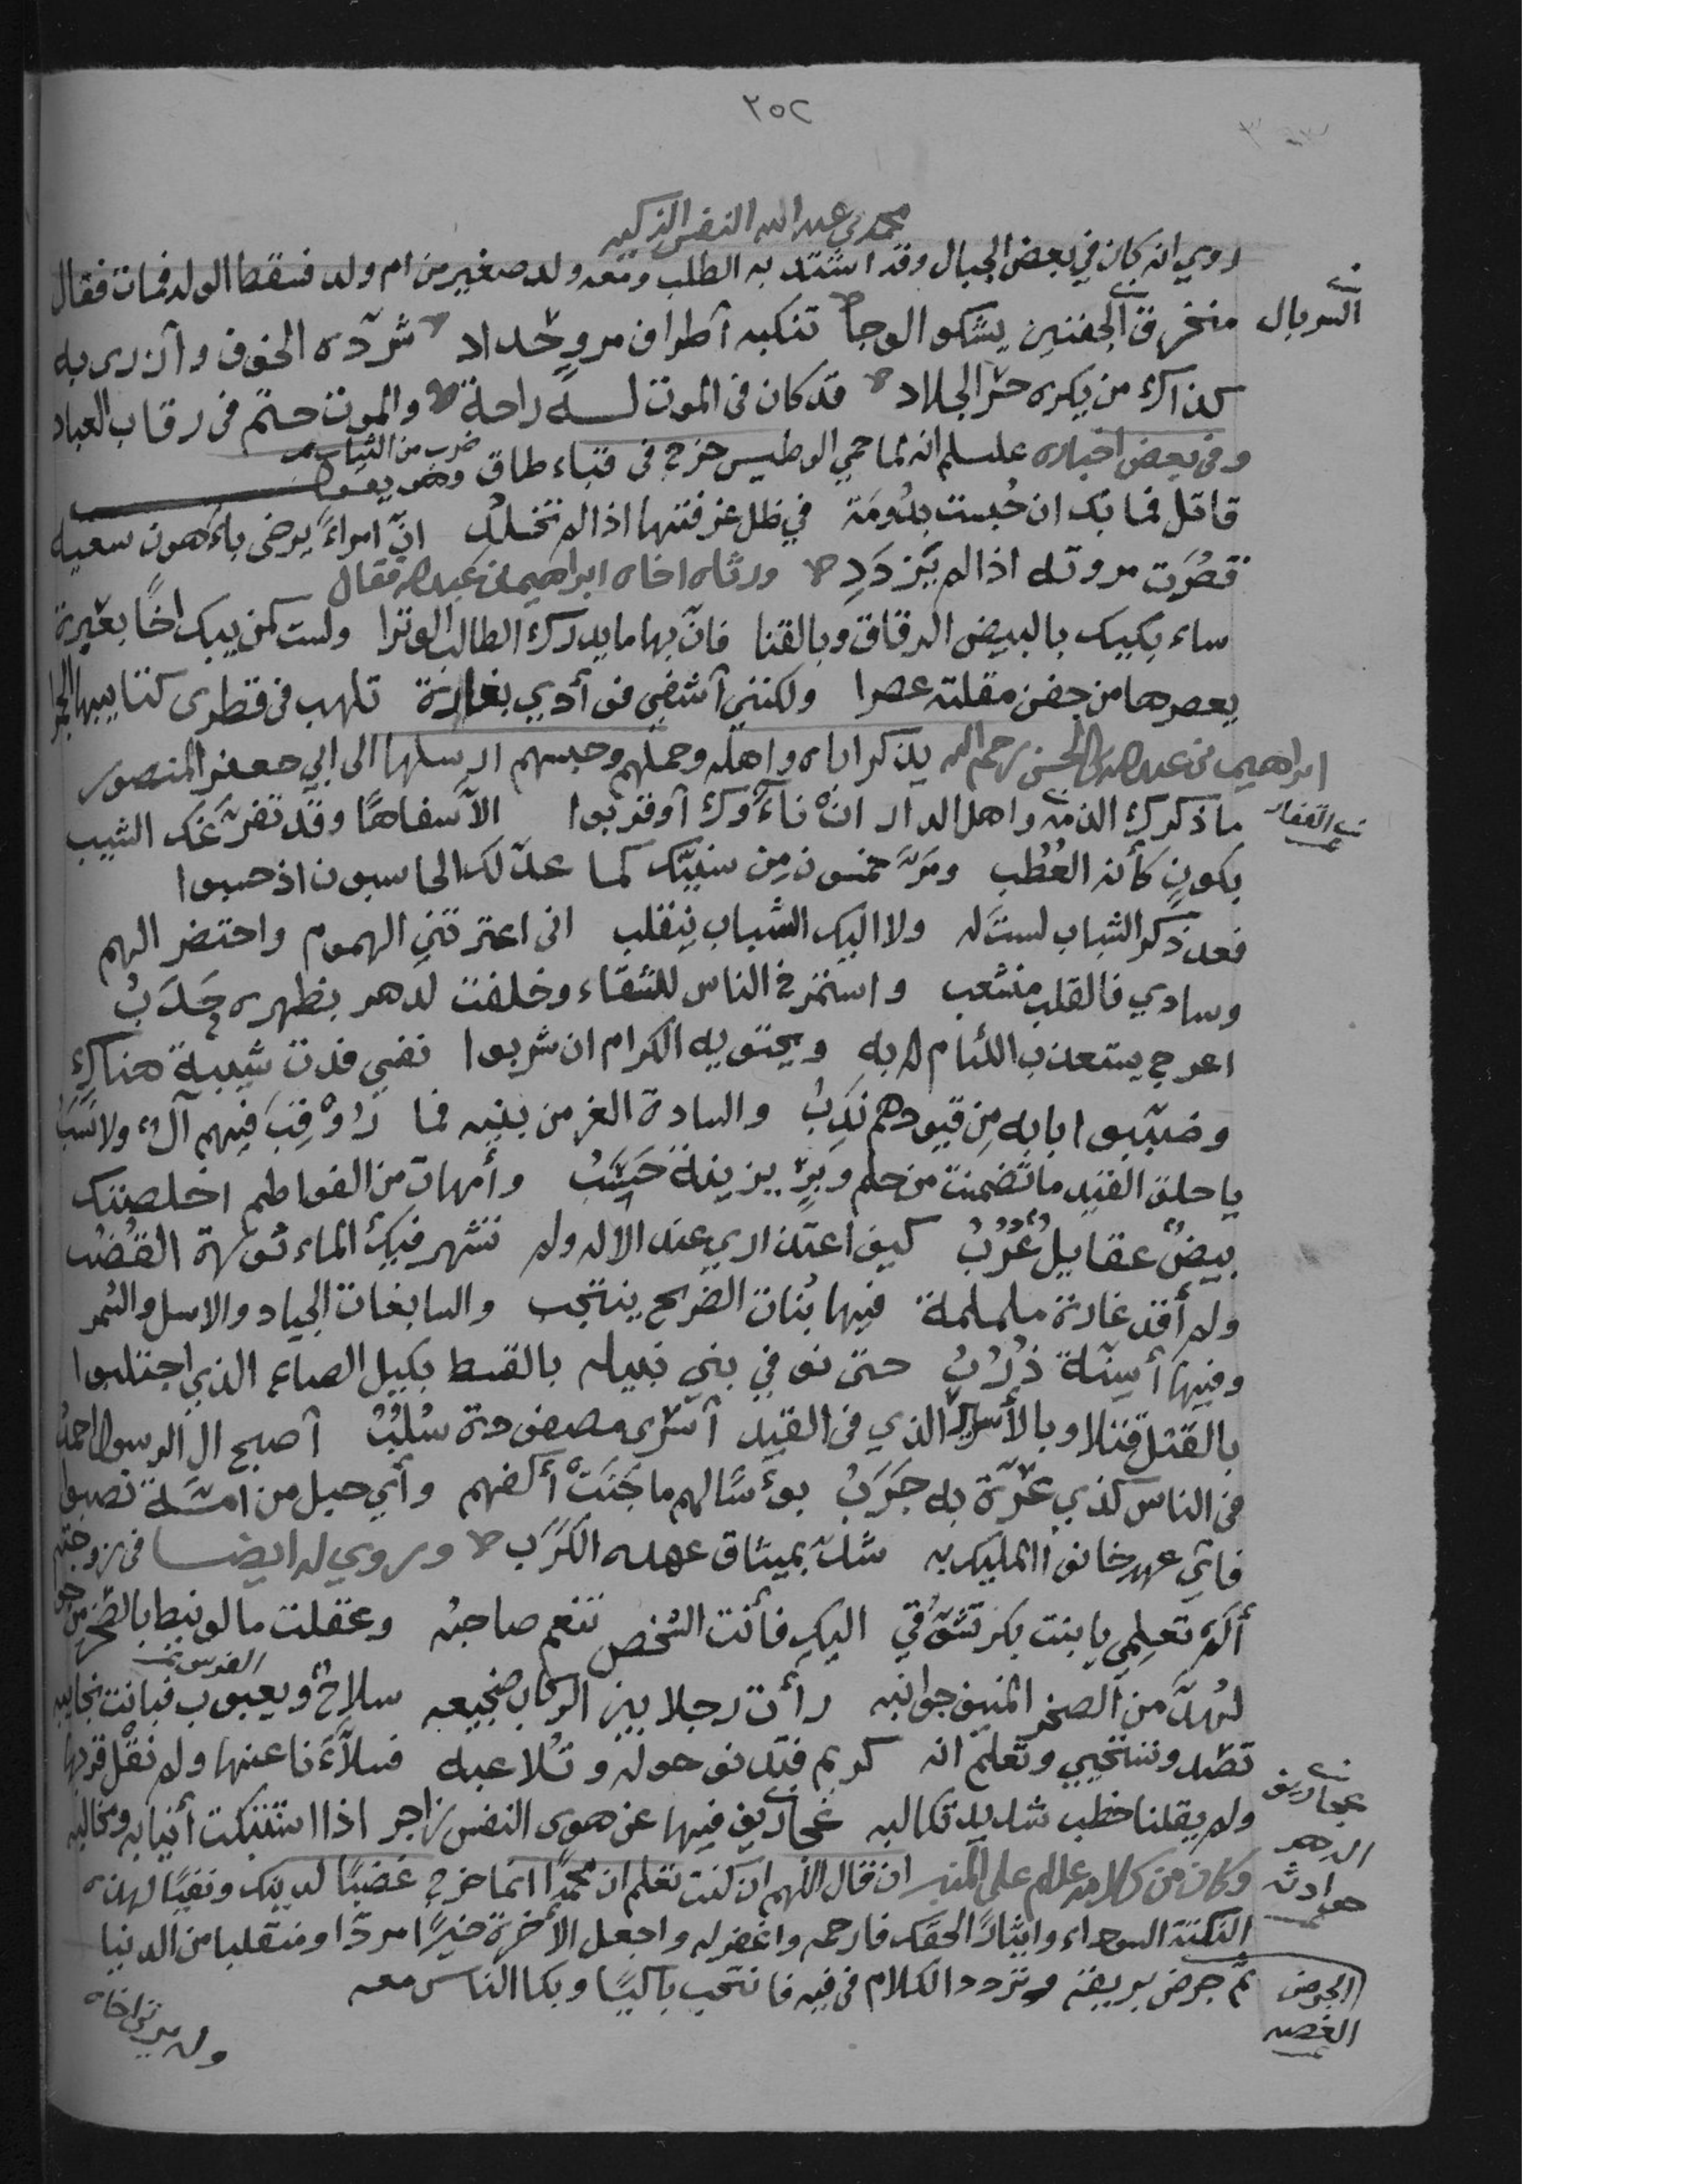 ٢٥٢
محمد بن عبد الله النفس الزكيه
روي انه كان في بعض الجبال وقد اشتد به الطلب ومعه ولد صغير من ام ولد فسقط الولد فمات فقال
السربال
منخرق الجفنين يشكو الوجا تنكبه أطراف مرو حداد شرّده الخوف وأزرى به
كذاك من يكره حرّ الجلاد قد كان في الموت له راحة والموت حتم في رقاب العباد
وفي بعض اخباره علسلم انه لما حمي الوطيس خرج في قباء طاق وهو يقول
ضرب من الثياب
قاتل فما بك ان حُبست بدُومَة في ظل غرفتها اذا لم تخلدِ انّ امراءً يرضى باءهون سعيه
قصُرَت مروته اذا لم يَزدَدِ ورثاه اخاه ابراهيم بن عبدالله فقال
ساءبكيك بالبيض الرقاق وبالقنا فانّ بها ما يدرك الطالب الوترا ولست كمن يبك اخًا بعَبرة
يعصرها من جفن مقلته عصرا ولكنني أشفي فؤادي بغارة تلهب في قطرى كتايبها الجمرا
ابراهيم بن عبدالله بن الحسن رحمه الله يذكر اباه واهله وحملهم وحبسهم ارسلها الى ابي جعفر المنصور
ما ذكرك الدمنه واهل الدار انْ ناءَوك أو قربوا الاّ سفاهًا وقد تفرّعك الشيب
بكونٍ كأنه العُطُب ومَرّ خمسون مِن سنيّك كما عدّ لك الحاسبون اذ حسبوا
فعد ذكر الشباب لستَ له ولا اليك الشباب ينقلب انى اعترتني الهموم واحتضر الهم
وسادي فالقلب منشعب واستخرج الناس للشقاء وخلفت لدهر بظهره حَدَبُ
اعرج يستعذب اللئام له به ويحتويه الكرام ان شربوا نفسي فدت شيبة هناك
وضنبوا بابه مِن قيودهم نَدِبُ والسادة الغر من بنيه فما رُوْقِبَ فيهم آلٌ ولا نَسَبُ
يا حلق القيد ما تضمنت من حلم وبِرّ يزينة حَسَبُ وأمهات من الفواطم اخلصتك
بيضٌ عقايلُ عُرُبُ كيف اعتذاري عند الاله ولم تشهر فيك الماءثورة القُضُب
ولم أقد غارة ململمة فيها بُنات الصريح ينتجب والسابغات الجياد والاسل والسُمر
وفيها أسِنّة ذُرُبُ حتى نوفي بني نبيله بالقسط بكيل الصاع الذي اجتلبوا
بالقتل قتلا وبالأسير الذي في القيد أسْرى مصفودة سُلُبُ أصبح ال الرسول احمدُ
في الناس كذي عُرّة به جَرَبُ بوءسًا لهم ما جَنَتْ أكفهم وأي حبل من امّة قصبوا
فايّ عهد خانوا المليك به شُدّ بميثاق عهده الكَرَب وروي له ايضا في زوجته
ألَمْ تعلمي يا بنت بكر تشَوّقي اليك فأنت الشخص تنعم صاحبُه وعقلت ما لو نيط بالصخر من جوى
لهُدّ من الصخر المنيف جوانبه رأت رجلا بين الركاب ضجيعه سلاحٌ ويعبوب فباتت تجانبه
الفرس
تصّد وتستحيي وتعلم انه كريم فتدنو حولَه وتُلاعبه فسلأَءَنا عنها ولم نقْل قربها
ولم يقلنا خطب شديد تكالبه عجاريف فيها عن هوى النفس زاجر اذا اشتبكت أنيابه ومخالبه
عجاريف
الدهر
حوادثه
وكان من كلامه علسلم على المنبر ان قال اللهم ان كنت تعلم ان محمدًا انما خرج غضبًا لدينك ونفيًا لهذه
النكتة السوداء وايثارًا لحقك فارحمه واغفر له واجعل الأخرة خيرًا مردّا ومنقلبا من الدنيا
ثم جرض بريقه وتردد الكلام في فيه فانتحب باكيًا وبكا الناس معه
الجرض
الغصه